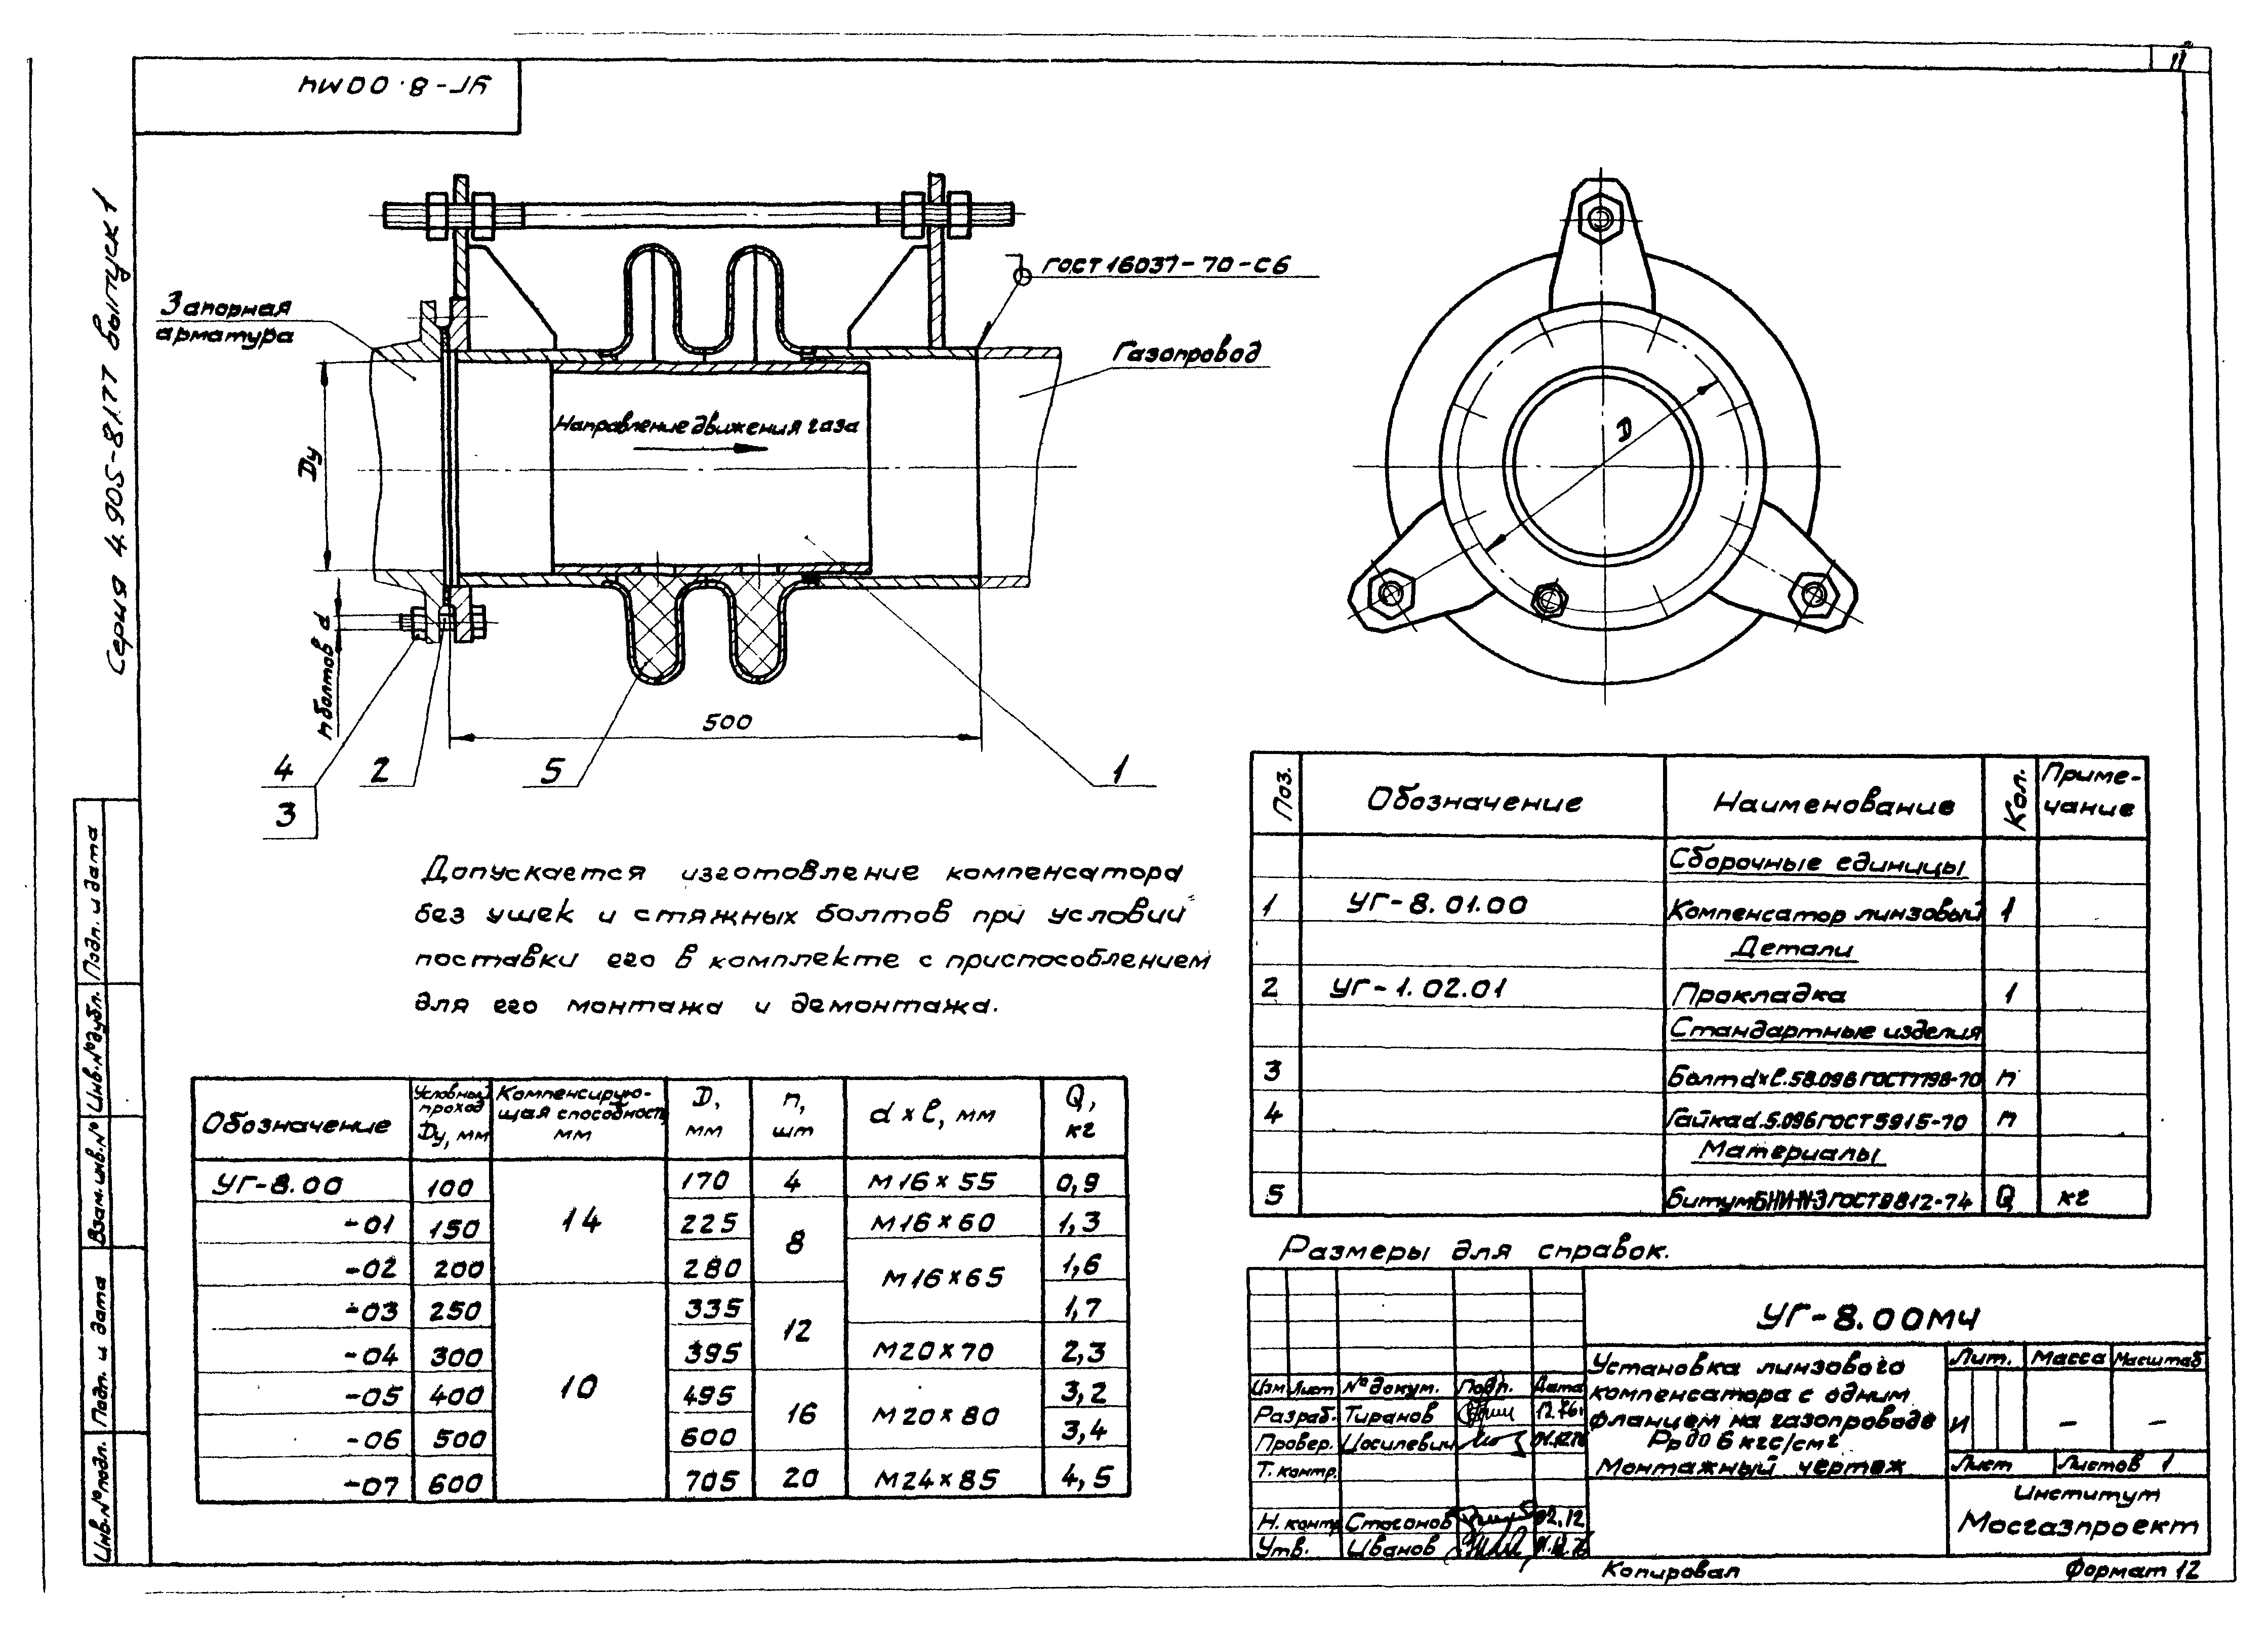 УГ-8.00МЧ
11
Серия 4.905-8/77 выпуск 1
Запорная
арматура
ГОСТ 16037-70-С6
Газопровод
Направление движения газа
Dу
n болтов d
D
500
4
3
2
5
1
Допускается изготовление компенсатора
без ушек и стяжных болтов при условии
поставки его в комплекте с приспособлением
для его монтажа и демонтажа.
Обозначение Условный проход Dу, мм Компенсирую-щая способность, мм D, мм n, шт d x ℓ, мм Q, кг
УГ-8.00 100 14 170 4 М16 x 55 0,9
-01 150 225 8 М16 x 60 1,3
-02 200 280 М16 x 65 1,6
-03 250 10 335 12 1,7
-04 300 395 М20 x 70 2,3
-05 400 495 16 М20 x 80 3,2
-06 500 600 3,4
-07 600 705 20 М24 x 85 4,5
Поз. Обозначение Наименование Кол. Приме-чание
Сборочные единицы
1 УГ-8.01.00 Компенсатор линзовый 1
Детали
2 УГ-1.02.01 Прокладка 1
Стандартные изделия
3 Болт d x ℓ.58.096 ГОСТ 7798-70 n
4 Гайка d.5.096 ГОСТ 5915-70 n
Материалы
5 Битум БНИ-IV-3 ГОСТ 9812-74 Q кг
Размеры для справок.
УГ-8.00МЧ
Установка линзового
компенсатора с одним
фланцем на газопроводе
Рр до 6 кгс/см²
Монтажный чертеж
Лит. Масса Масштаб
И - -
Лист Листов 1
Институт
Мосгазпроект
Изм Лист № докум. Подп. Дата
Разраб. Тиранов 12.76г
Провер. Иосилевич
Т. контр.
Н. контр Стогонов 02.12
Утв. Иванов
Копировал
Формат 12
Подп. и дата
Инв. № дубл.
Взам. инв. №
Подп. и дата
Инв. № подл.